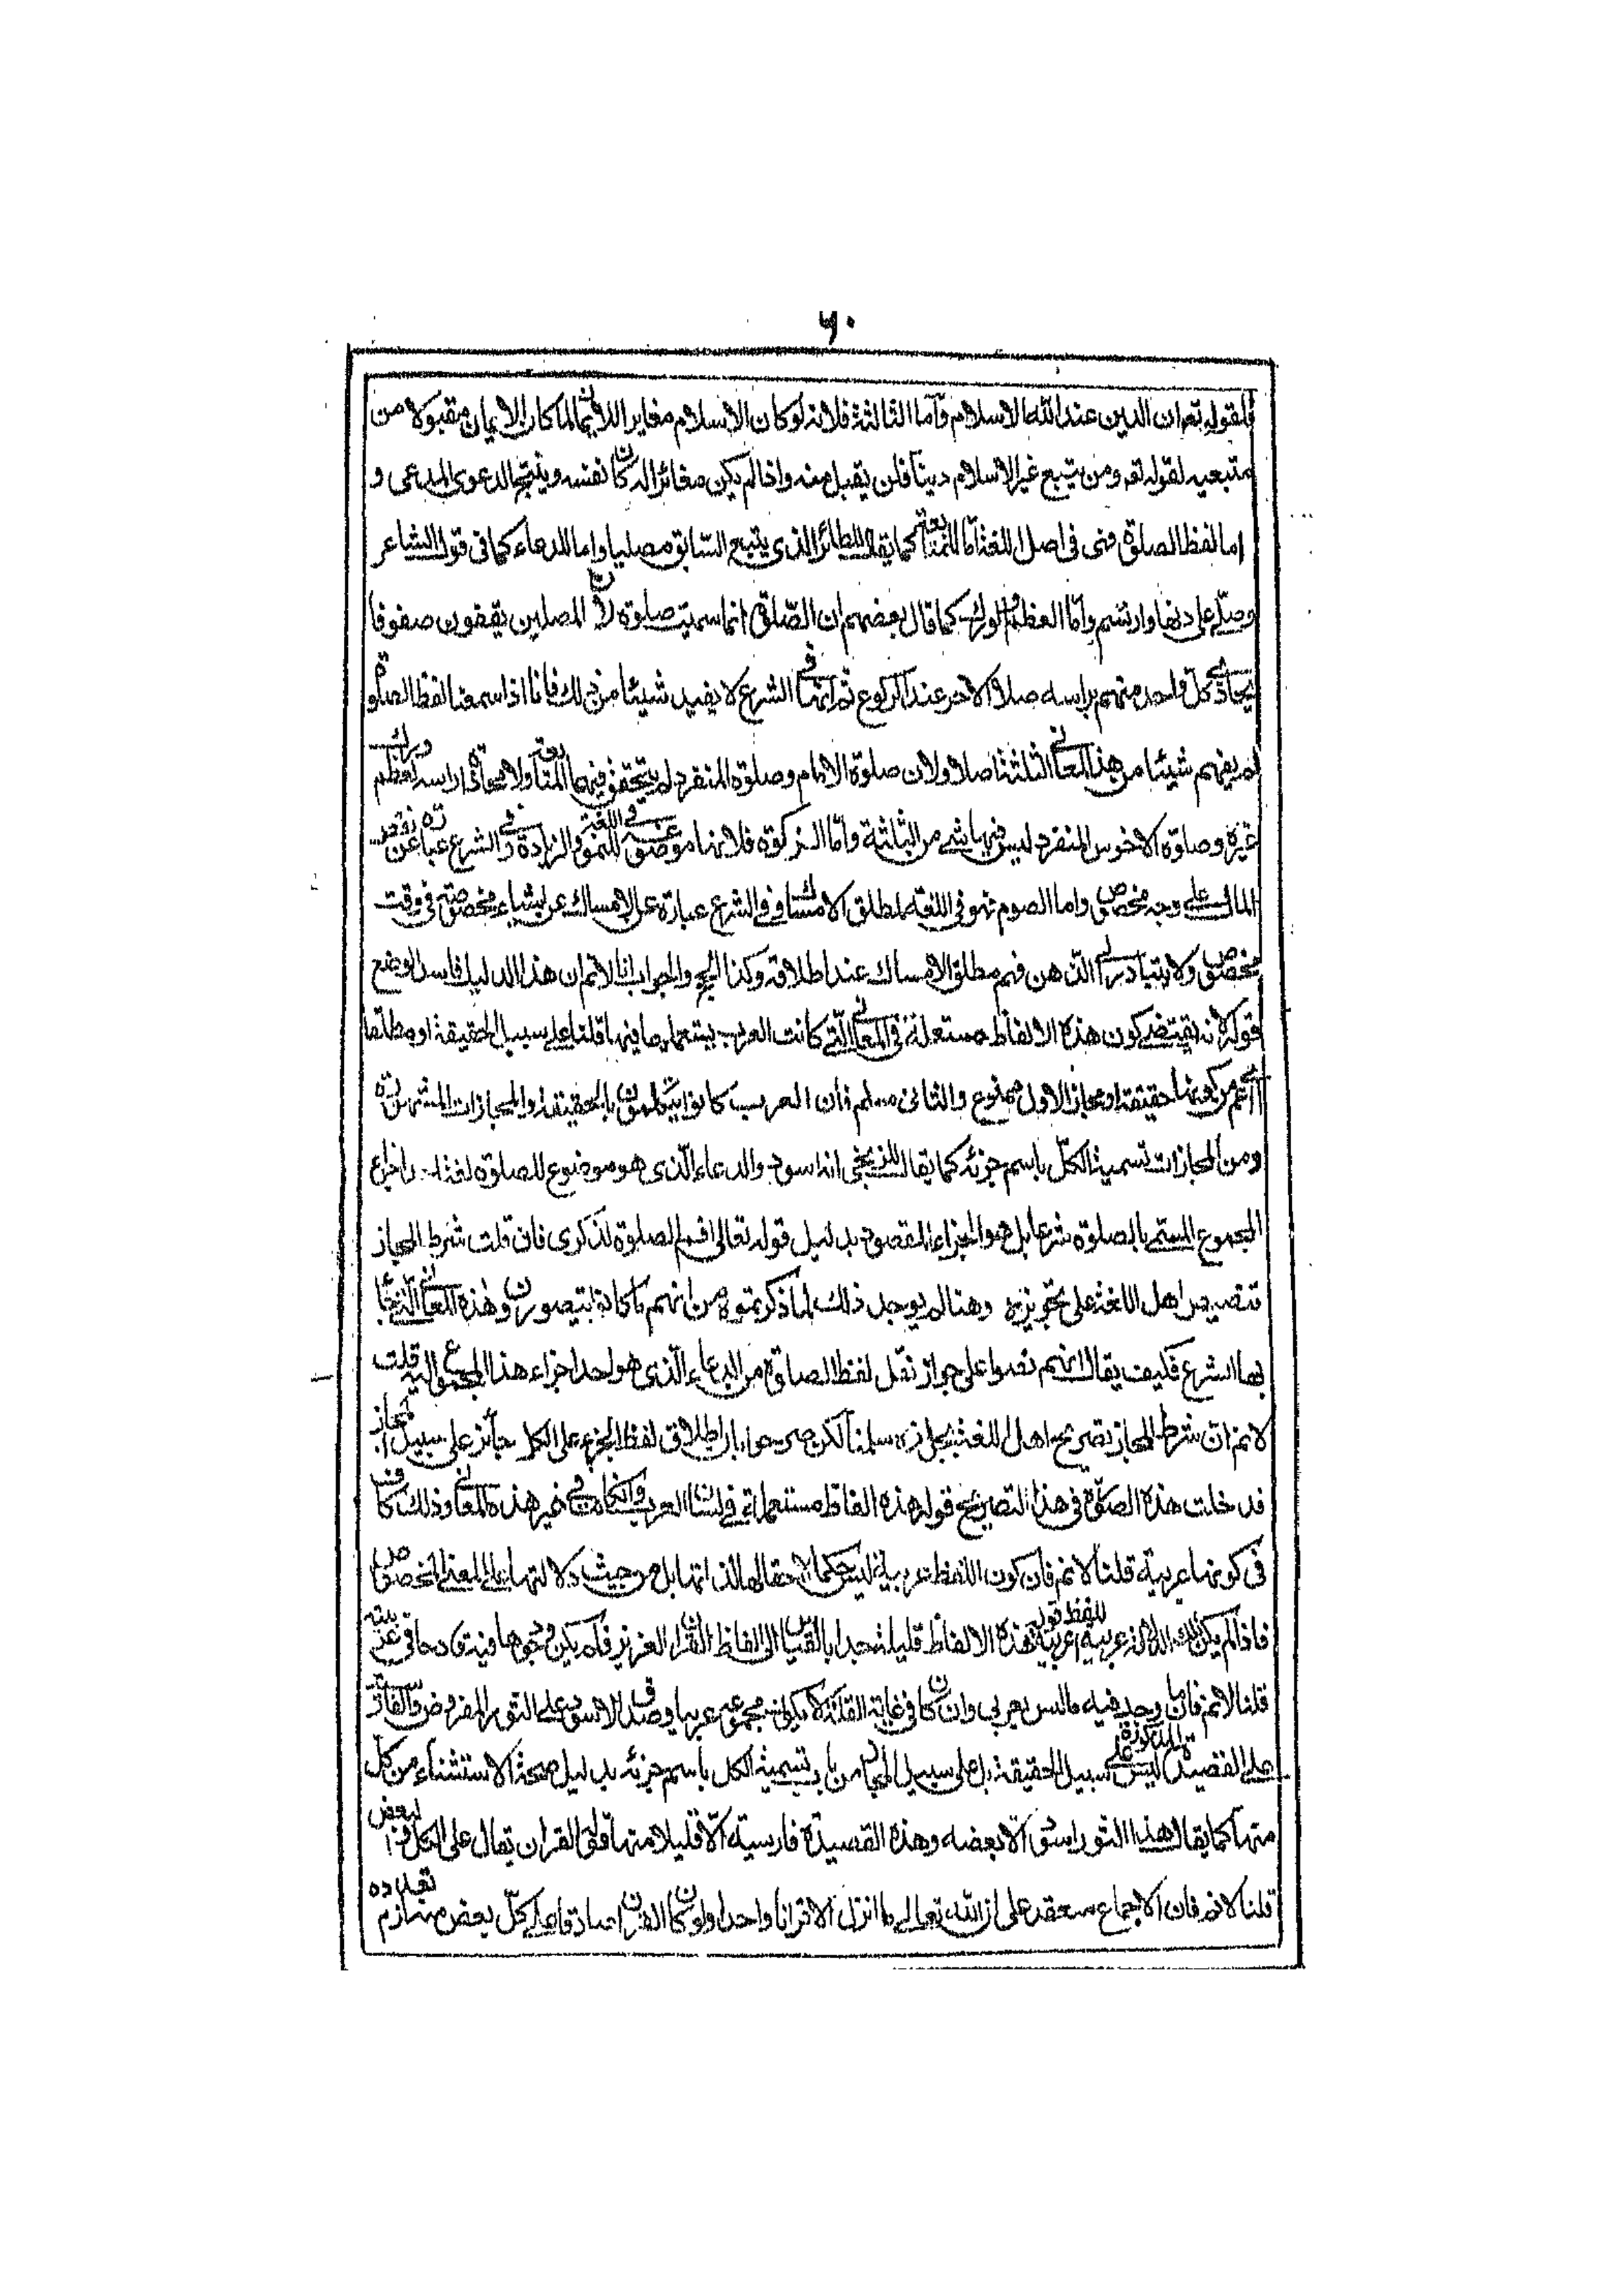 ٦٠
فلقوله تع ان الدين عند الله الاسلام واما الثالثة فلانه لو كان الاسلام مغايرا للايمان لما كان الايمان مقبولا من
متبعيه لقوله تع ومن يتبع غير الاسلام دينا فلن يقبل منه واذا لم يكن مغائرا له كان نفسه وينتج الدعوى المدعى و
اما لفظ الصلوة فهى فى اصل اللغة اما للمتابعة كما يقال للطائر الذى يتبع السّابق مصليا واما للدعاء كما فى قول الشاعر
وصلّى على دنها وارتسم وامّا العظم الورك كما قال بعضهم ان الصّلوة انما سميت صلوة لان المصلين يقفون صفوفا
يحاذى كل واحد منهم براسه صلا الاخر عند الركوع ثم انها فى الشرع لا يفيد شيئا من ذلك فانا اذا سمعنا لفظ الصلوة
لم يفهم شيئا من هذه المعانى الثلثة اصلا ولان صلوة الامام وصلوة المنفرد لم يتحقق فيهما المتابعة ولا محاذاة راسه لعظم ورك
غيره وصلوة الاخرس المنفرد ليس فيها شى من الثلثة وامّا الزكوة فلانها موضوعة فى اللغة للنمو والزيادة وفى الشرع عبارة عن
المال على وجه مخصوص واما الصوم فهو فى اللغة لمطلق الامساك وفى الشرع عبارة عن الامساك عن اشياء مخصوصة فى وقت
مخصوص ولا يتبادر الى الذهن فهم مطلق الامساك عند اطلاقه وكذا الحج والجواب انا لا نم ان هذا الدليل فاسد الوضع
قوله لانه يقتضى كون هذه الالفاظ مستعملة فى المعانى الّتى كانت العرب يستعملها فيها قلنا على سبيل الحقيقة او مطلقا
اعم من كونها حقيقة او مجازا الاول ممنوع والثانى مسلم فان العرب كانوا يتكلمون بالحقيقة والمجازات المشهورة
ومن المجازات تسمية الكلّ باسم جزئه كما يقال للزنجى انه اسود والدعاء الّذى هو موضوع للصلوة لغة اجزاء
المجموع المسمّى بالصلوة شرعا بل هو الجزء المقصود بدليل قوله تعالى اقم الصلوة لذكرى فان قلت شرط المجاز
تنصيص اهل اللغة على تجويزه وهنا لم يوجد ذلك لما ذكرتموه من انهم ما كانوا يتصورون هذه المعانى الّتى جاء
بها الشرع فكيف يقال انهم نصوا على جواز نقل لفظ الصلوة من الدعاء الّذى هو احد اجزاء هذا المجموع اليه قلت
لا نم ان شرط المجاز تصريح اهل اللغة بجوازه سلمنا لكن صرحوا بان اطلاق لفظ الجزء على الكل جائز على سبيل المجاز
فدخلت هذه الصورة فى هذا التصريح قوله هذه الفاظ مستعملة فى لسان العرب وان كانت فى غير هذه المعانى وذلك كاف
فى كونها عربية قلنا لا نم فان كون اللفظ عربية ليس حكما لاحقا لها لذاتها بل من حيث دلالتها على المعنى المخصوص
فاذا لم يكن تلك الدلالة عربية لم يكن اللفظ عربية قوله هذه الالفاظ قليلة جدا بالقياس الى الفاظ القران العزيز فلم يكن وجودها فيه قادحا فى عربيته
قلنا لا نم فان ما وجد فيه ما ليس بعربى وان كان فى غاية القلة لا يكون مجموعه عربيا وصدق الاسود على الثور المفروض والفارسية
على القصيدة المذكورة ليس على سبيل الحقيقة بل على سبيل المجاز من باب تسمية الكل باسم جزئه بدليل صحة الاستثناء من كل
منها كما يقال هذا الثور اسود الا بعضه وهذه القصيدة فارسية الّا قليلا منها قوله القران يقال على الكل والبعض
قلنا لا نم فان الاجماع منعقد على ان الله تعالى ما انزل الا قرانا واحدا ولو كان القران صادقا على كلّ بعض منه لزم تعدده